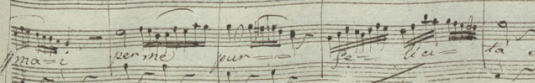 ma=i per me pur== fe= lici= tà